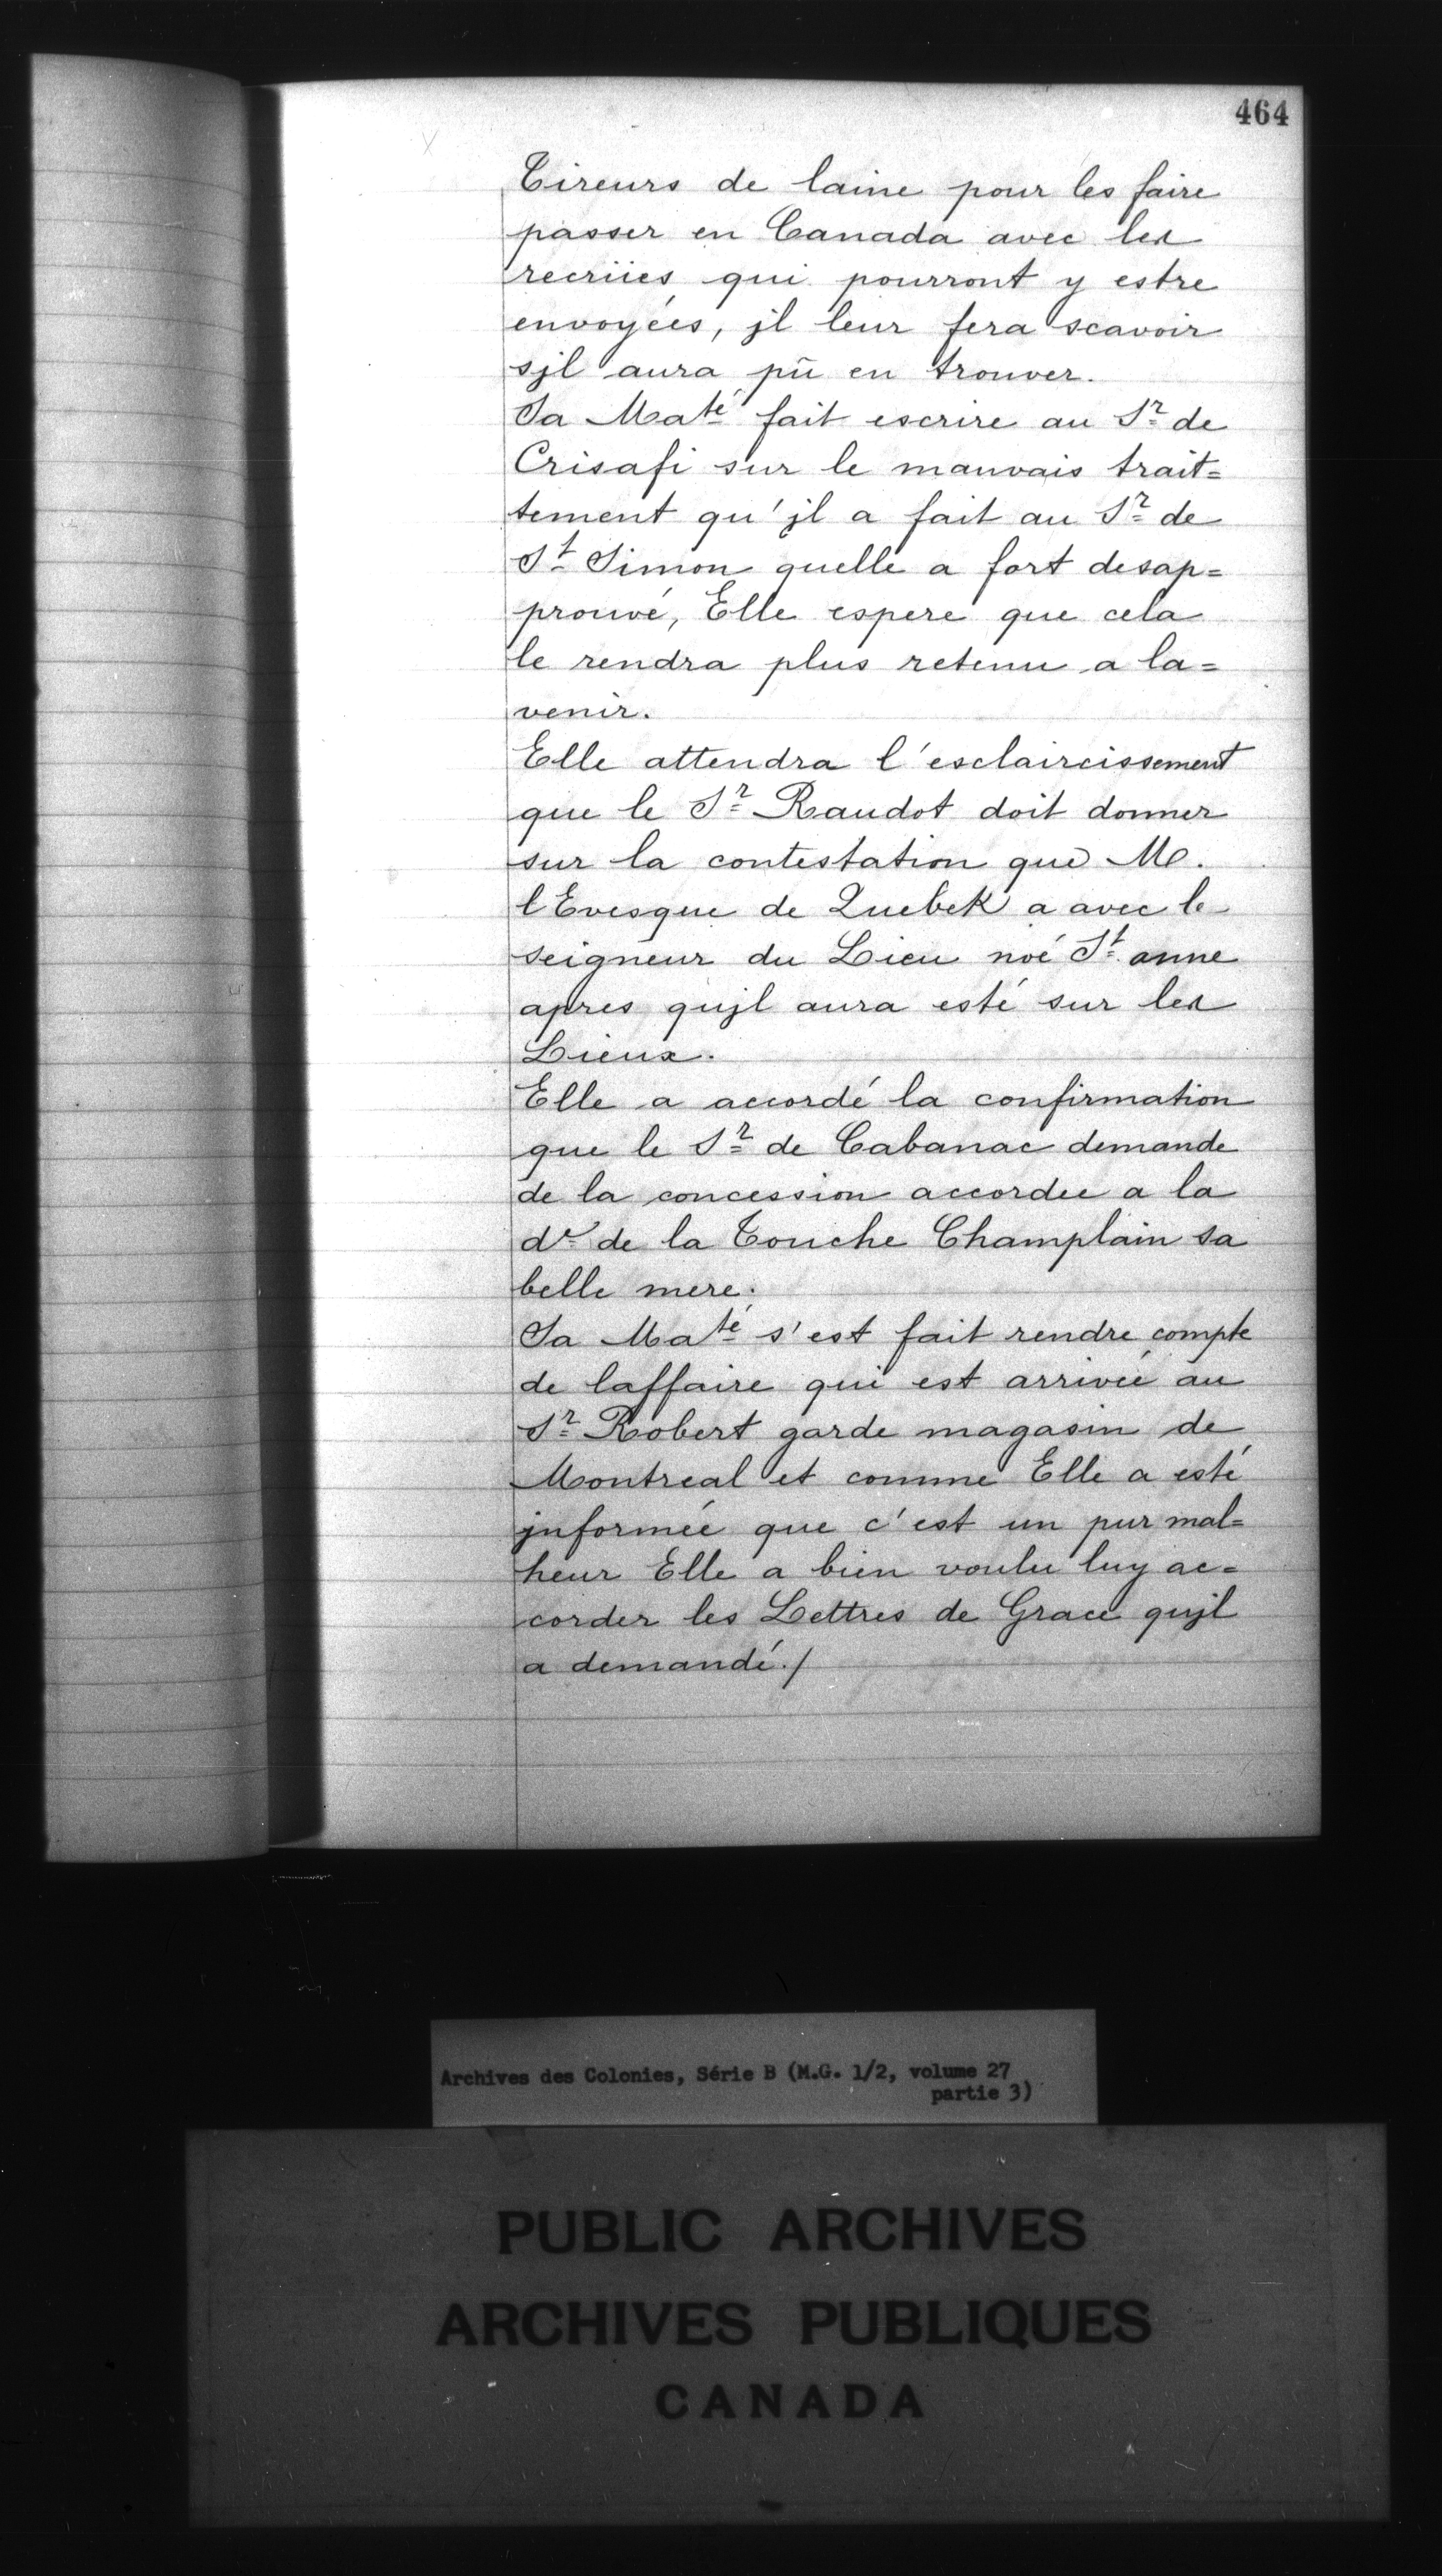 464
Tireurs de laine pour les faire
passer en Canada avec les
recrües qui pourront y estre
envoyées, jl leur fera scavoir
sjl aura pû en trouver.
Sa Maté fait escrire au Sr de
Crisafi sur le mauvais trait=
tement qu'jl a fait au Sr de
St Simon quelle a fort desap=
prouvé, Elle espere que cela
le rendra plus retenu a la=
venir.
Elle attendra l'esclaircissement
que le Sr Raudot doit donner
sur la contestation que M.
l'Evesque de Quebek a avec le
seigneur du Lieu noé St anne
apres qujl aura esté sur les
Lieux.
Elle a accordé la confirmation
que le Sr de Cabanac demande
de la concession accordee a la
de de la Touche Champlain sa
belle mere.
Sa Maté s'est fait rendre compte
de laffaire qui est arrivée au
Sr Robert garde magasin de
Montreal et comme Elle a esté
jnformée que c'est un pur mal=
heur Elle a bien voulu luy ac=
corder les Lettres de Grace qujl
a demandé./
Archives des Colonies, Série B (M.G. 1/2, volume 27
partie 3)
PUBLIC ARCHIVES
ARCHIVES PUBLIQUES
CANADA